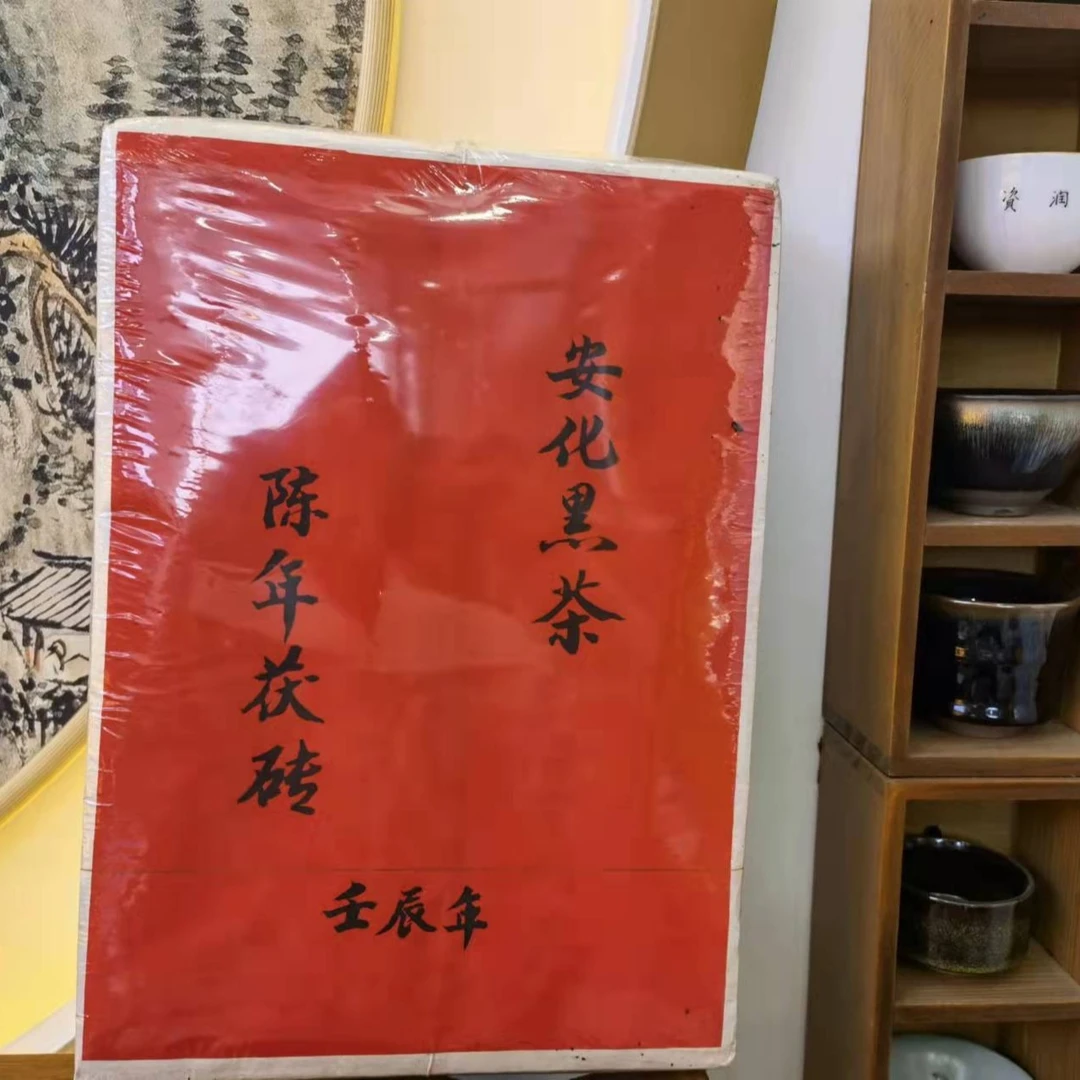 安化黑茶
陈年茯砖
壬辰年
資 润